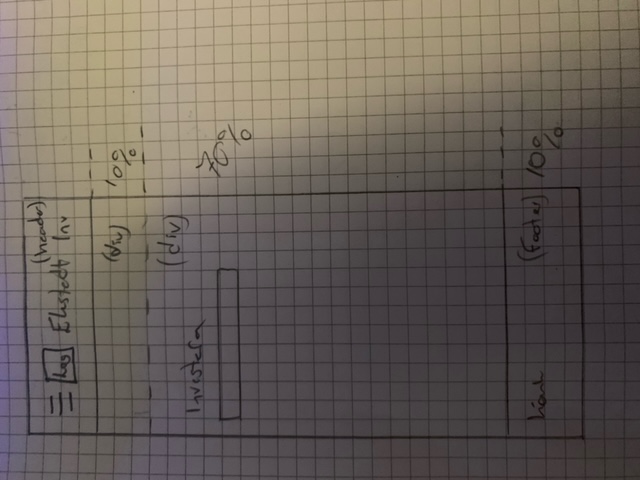 (header)
Log Ekstedt Inv
(div) 10%
(div)
Investera
70%
(footer) 10%